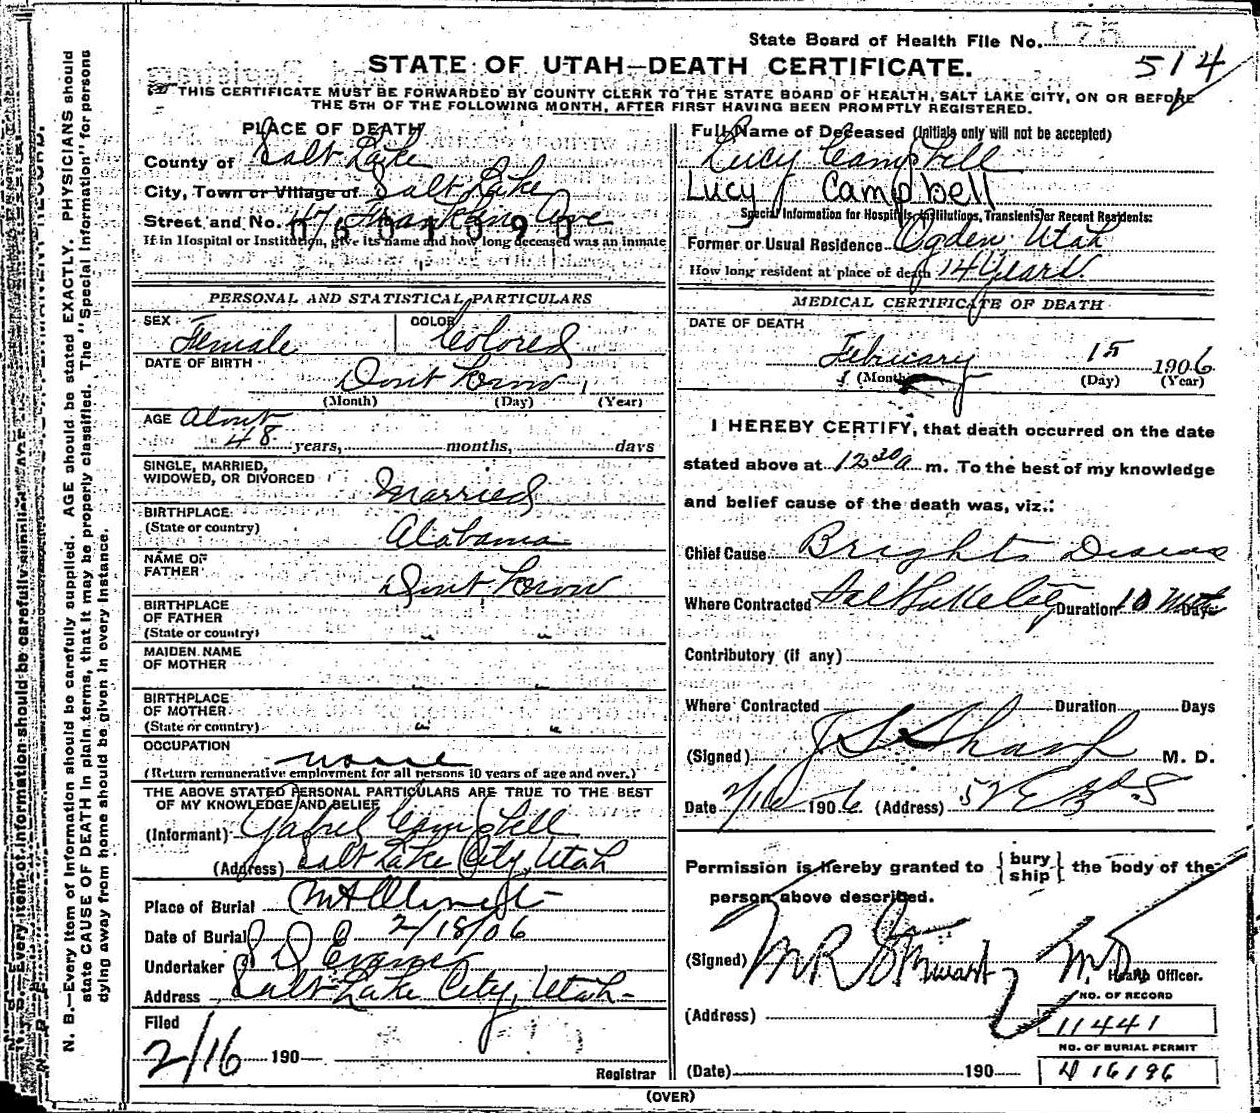 State Board of Health File No. 175
514
STATE OF UTAH—DEATH CERTIFICATE.
THIS CERTIFICATE MUST BE FORWARDED BY COUNTY CLERK TO THE STATE BOARD OF HEALTH, SALT LAKE CITY, ON OR BEFORE
THE 5TH OF THE FOLLOWING MONTH, AFTER FIRST HAVING BEEN PROMPTLY REGISTERED.
PLACE OF DEATH
County of Salt Lake
City, Town or Village of Salt Lake
Street and No. Franklin Ave
0601090
If in Hospital or Institution, give its name and how long deceased was an inmate
PERSONAL AND STATISTICAL PARTICULARS
SEX Female COLOR Colored
DATE OF BIRTH Dont Know 1
(Month) (Day) (Year)
AGE About
48 years, months, days
SINGLE, MARRIED,
WIDOWED, OR DIVORCED Married
BIRTHPLACE
(State or country) Alabama
NAME OF
FATHER Dont Know
BIRTHPLACE
OF FATHER
(State or country) " "
MAIDEN NAME
OF MOTHER " "
BIRTHPLACE
OF MOTHER
(State or country) " "
OCCUPATION
(Return remunerative employment for all persons 10 years of age and over.)
THE ABOVE STATED PERSONAL PARTICULARS ARE TRUE TO THE BEST
OF MY KNOWLEDGE AND BELIEF
(Informant) Campbell
(Address) Salt Lake City, Utah
Place of Burial Mt Olivet
Date of Burial 2/18/06
Undertaker Evans
Address Salt Lake City, Utah-
Filed
2/16 190
Registrar
Full Name of Deceased (Initials only will not be accepted)
Lucy Campbell
Lucy J Campbell
Special Information for Hospitals, Institutions, Transients or Recent Residents:
Former or Usual Residence Ogden Utah
How long resident at place of death 14 Years
MEDICAL CERTIFICATE OF DEATH
DATE OF DEATH
February 15 1906
(Month) (Day) (Year)
I HEREBY CERTIFY, that death occurred on the date
stated above at 12 30 a m. To the best of my knowledge
and belief cause of the death was, viz.:
Chief Cause Brights Disease
Where Contracted Salt Lake City Duration 10 Days
Contributory (if any)
Where Contracted Duration Days
(Signed) M. D.
Date 2/16 1906 (Address)
Permission is hereby granted to {bury ship} the body of the
person above described.
(Signed) M R Stewart M.D.
Health Officer.
(Address)
NO. OF RECORD
11441
NO. OF BURIAL PERMIT
(Date) 190
16196
(OVER)
N. B.—Every item of information should be carefully supplied. AGE should be stated EXACTLY. PHYSICIANS should
state CAUSE OF DEATH in plain terms, that it may be properly classified. The "Special Information" for persons
dying away from home should be given in every instance.